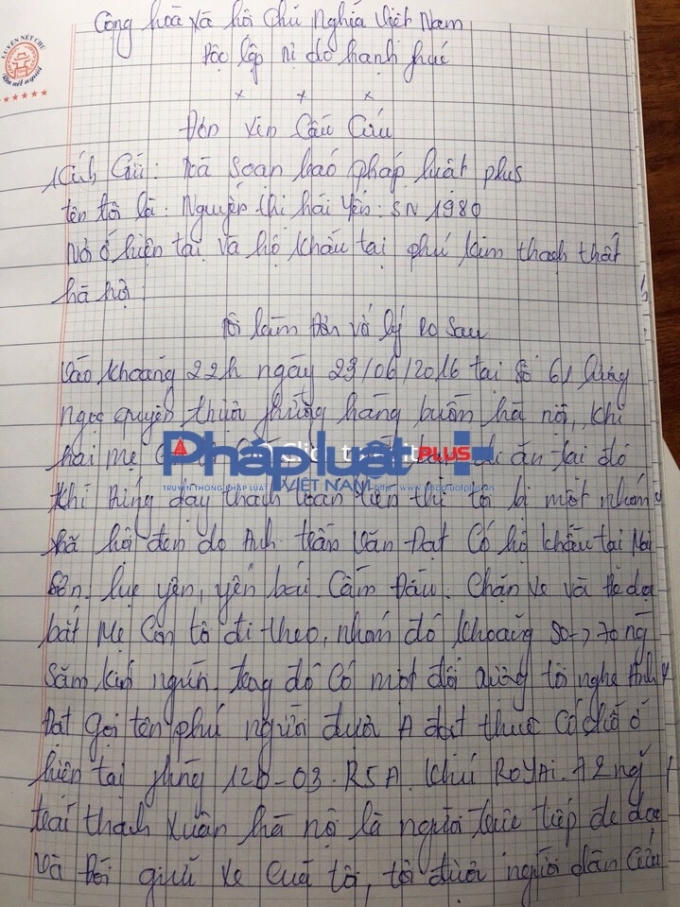 Công hoà xã hôi Chủ Nghĩa Việt Nam
Độc lập hạnh
x x x
Đơn xin Cấu Cứu
Kính Gửi: Toà soạn báo pháp luật plus
tên tôi là: Nguyễn thị hải yến: SN 1980
Nơi ở hiện tại và hộ khẩu tại phú kim thạch thất
hà nội:
Tôi làm đơn với lý do sau
Vào khoảng 22h ngày 23/06/2016 tại số 61 lương
ngọc quyến thuộc phường hàng buồm hà nôi, khi
hai mẹ đi ăn tại đó
Pháp luật PLUS
TRUYỀN THÔNG PHÁP LUẬT VIỆT NAM
khi đứng dậy thanh toán tiền thì tôi bị một nhóm
xã hội đen do Anh trần Văn Đạt Có hộ khẩu tại
lục yên, yên bái. Cầm Đầu. Chặn xe và đe dọa
bắt Mẹ Con tô đi theo, nhóm đó khoảng 50-> 70 ng
trong đó có một đối tượng tôi nghe Anh
Đạt gọi tên phú người dưới A đạt Có chỗ ở
hiện tại phòng 12b-03. R5A. khu ROYAi. 72 ng
trãi thanh xuân hà nộ là người trực tiếp đe dọa
và Đòi giữ xe Của tôi, tôi được người dân Cứu